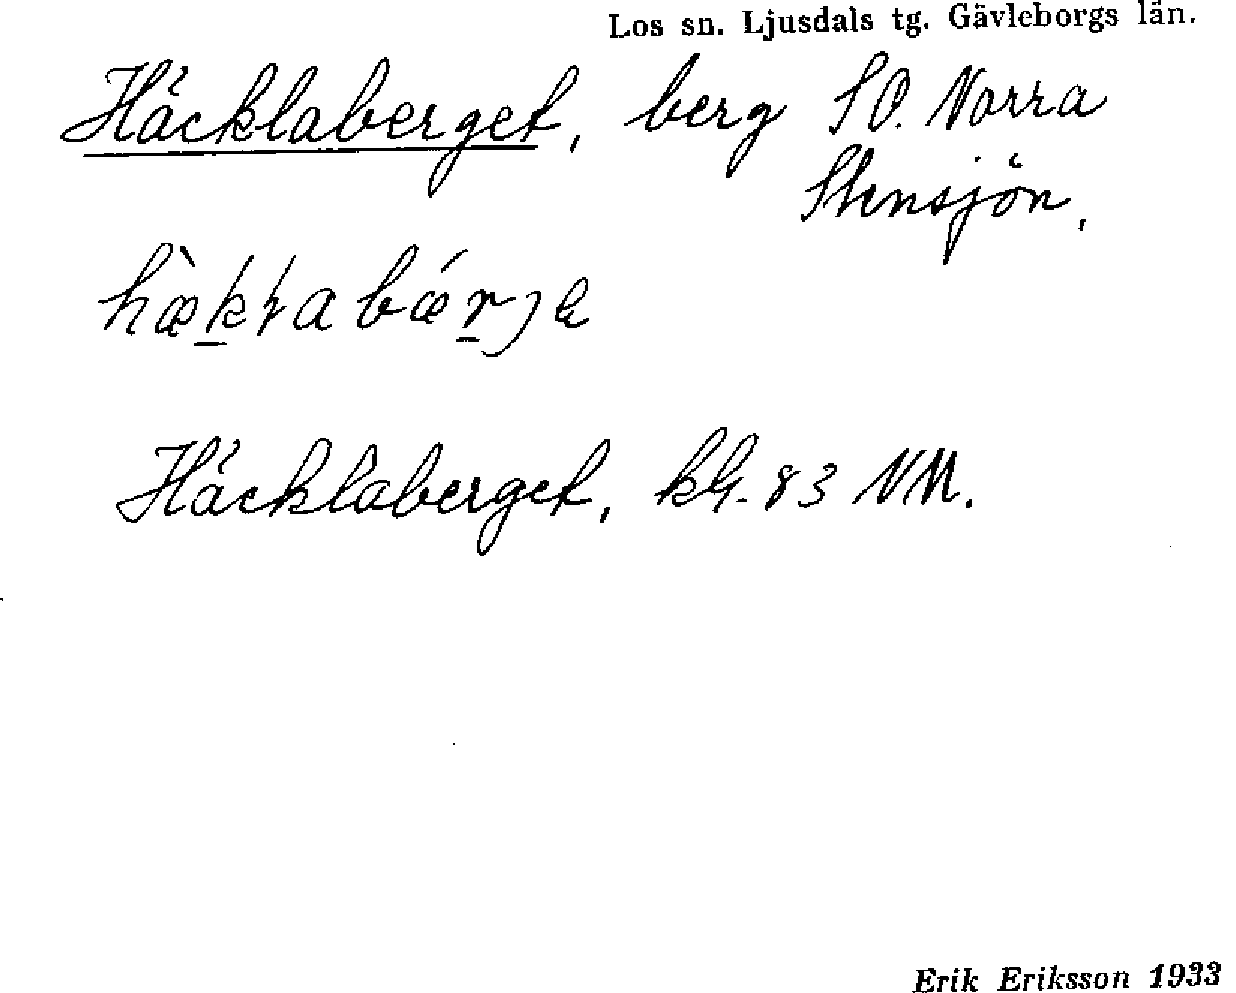 Los sn. Ljusdals tg. Gävleborgs län.
Häcklaberget, berg SO. Norra
Stensjön.
Häcklaberget, kbl. 83 NM.
Erik Eriksson 1933